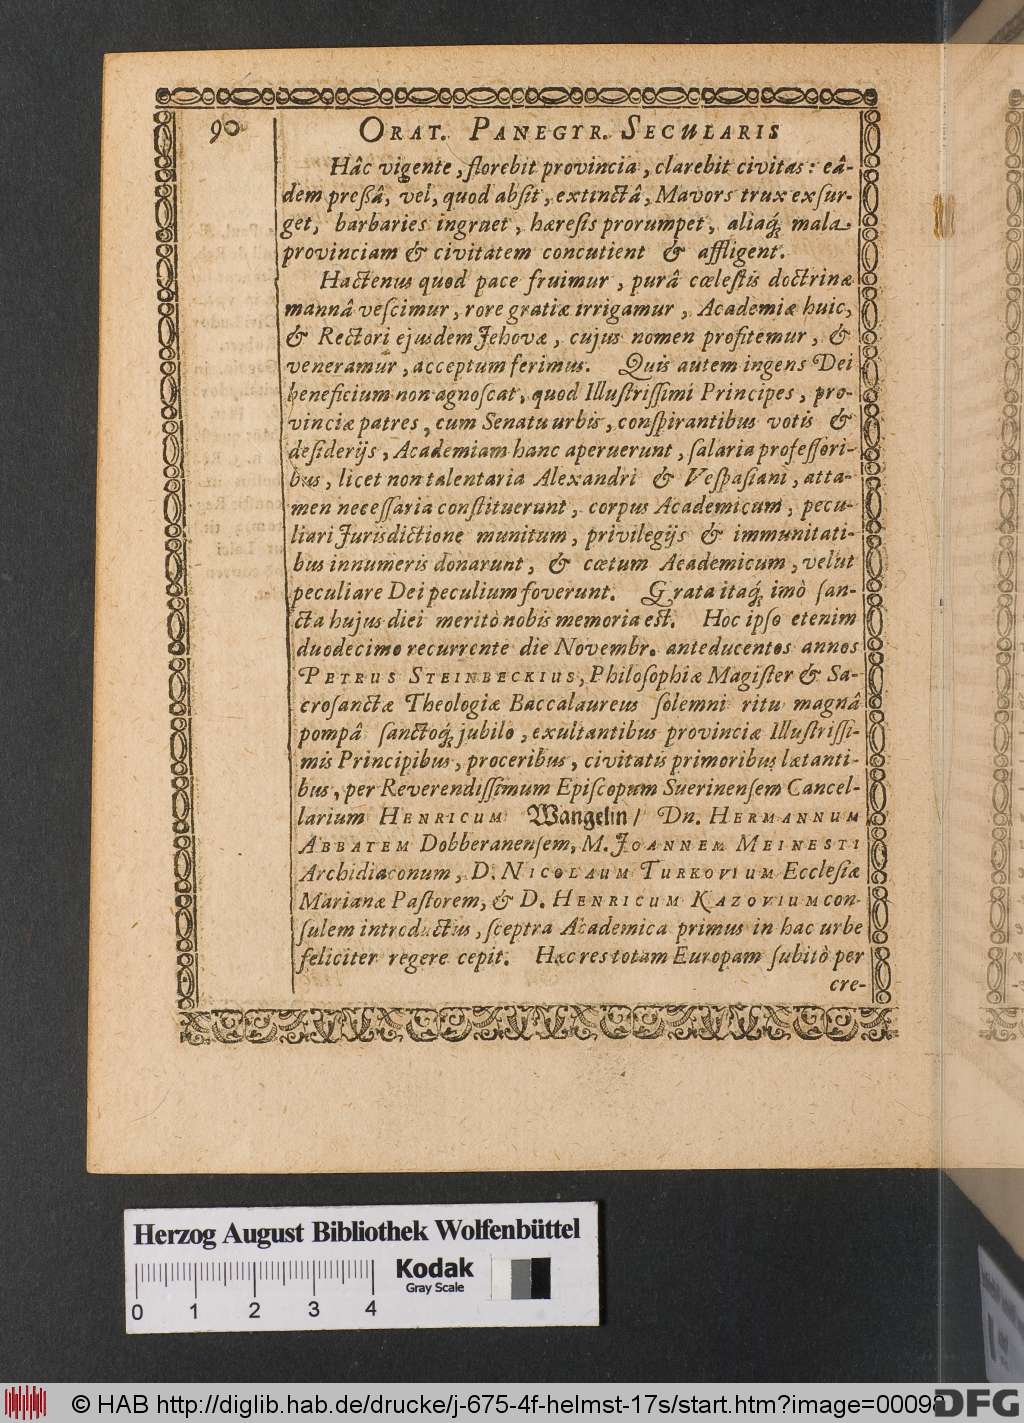 90 ORAT. PANEGYR. SECULARIS
Hâc vigente, florebit provincia, clarebit civitas: eâ-
dem preßâ, vel, quod absit, extinctâ, Mavors trux exsur-
get, barbaries ingruet, hæresis prorumpet, aliaq́; mala
provinciam & civitatem concutient & affligent.
Hactenus quod pace fruimur, purâ cœlestis doctrinæ
mannâ vescimur, rore gratiæ irrigamur, Academiæ huic,
& Rectori ejusdem Jehovæ, cujus nomen profitemur, &
veneramur, acceptum ferimus. Quis autem ingens Dei
beneficium non agnoscat, quod Illustrissimi Principes, pro-
vinciæ patres, cum Senatu urbis, conspirantibus votis &
desiderijs, Academiam hanc aperuerunt, salaria professori-
bus, licet non talentaria Alexandri & Vespasiani, atta-
men necessaria constituerunt, corpus Academicum, pecu-
liari Jurisdictione munitum, privilegijs & immunitati-
bus innumeris donarunt, & cœtum Academicum, velut
peculiare Dei peculium foverunt. Grata itaq́; imò san-
cta hujus diei meritò nobis memoria est. Hoc ipso etenim
duodecimo recurrente die Novembr. ante ducentos annos
PETRUS STEINBECKIUS, Philosophiæ Magister & Sa-
crosanctæ Theologiæ Baccalaureus solemni ritu magnâ
pompâ sanctoq́; jubilo, exultantibus provinciæ Illustrissi-
mis Principibus, proceribus, civitatis primoribus lætanti-
bus, per Reverendissimum Episcopum Suerinensem Cancel-
larium HENRICUM Wangelin / Dn. HERMANNUM
ABBATEM Dobberanensem, M. JOANNEM MEINESTI
Archidiaconum, D. NICOLAUM TURKOVIUM Ecclesiæ
Marianæ Pastorem, & D. HENRICUM KAZOVIUM con-
sulem introductus, sceptra Academica primus in hac urbe
feliciter regere cepit. Hæc res totam Europam subitò per
cre-
Herzog August Bibliothek Wolfenbüttel
0 1 2 3 4
Kodak
Gray Scale
© HAB http://diglib.hab.de/drucke/j-675-4f-helmst-17s/start.htm?image=00098
DFG